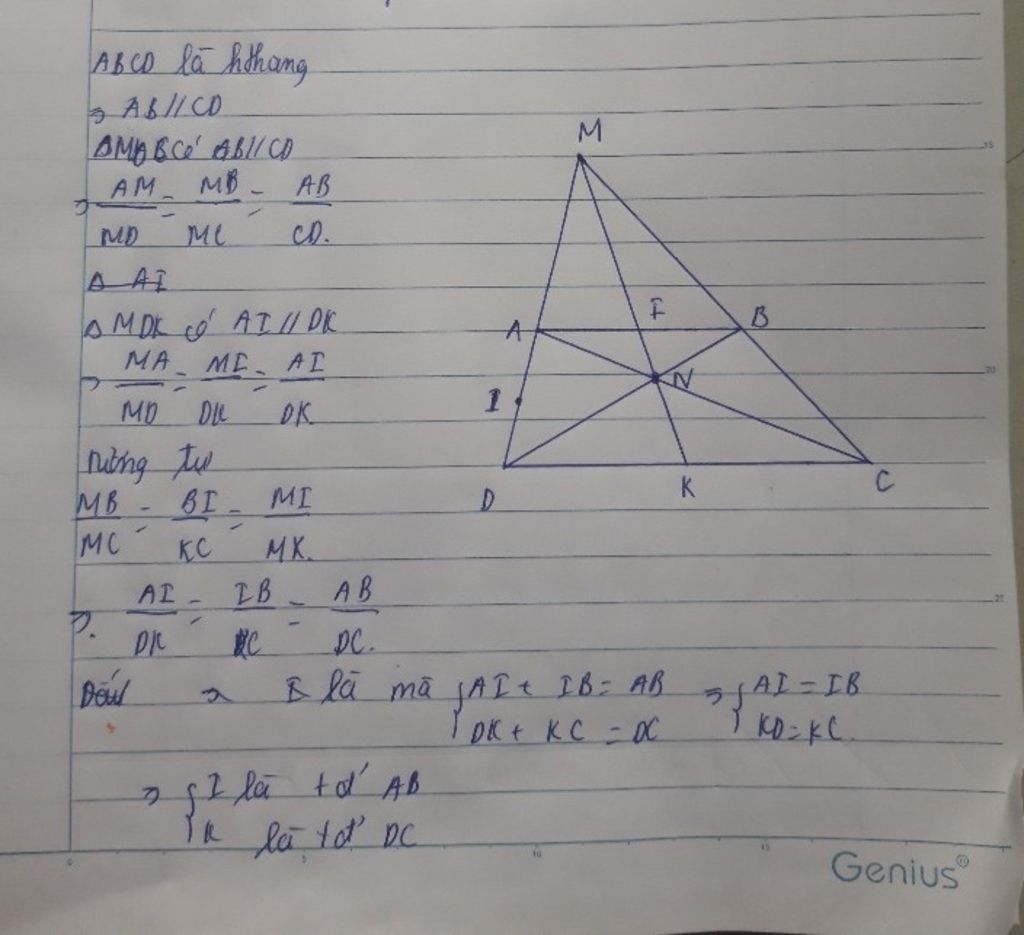 ABCD là hthang
⇒ AB//CD
ΔMAB có AB//CD
⇒ AM/MD = MB/MC = AB/CD.
Δ AI
Δ MDK có AI // DK
⇒ MA/MD = MI/DK = AI/DK
Tương tự
MB/MC = BI/KC = MI/MK.
⇒. AI/DK = IB/KC = AB/DC.
⇒ I là mà { AI + IB = AB ⇒ { AI = IB
DK + KC = DC KD = KC.
⇒ { I là tđ' AB
K là tđ' DC
M
A
I
B
I
N
D
K
C
15
20
25
0
5
10
15
Genius